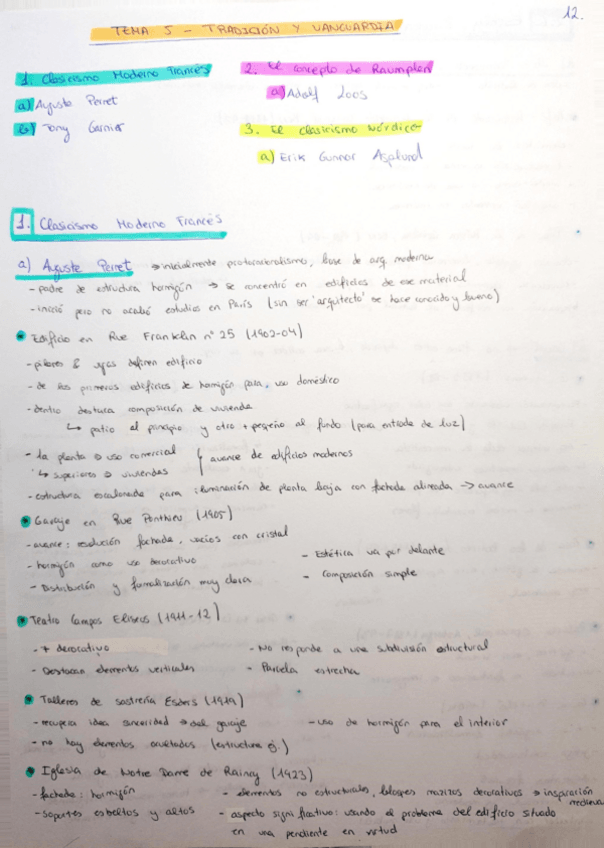 12.
TEMA 5 - TRADICIÓN Y VANGUARDIA
1. Clasicismo Moderno Francés
a) Auguste Perret
b) Tony Garnier
2. El concepto de Raumplan
a) Adolf Loos
3. El clasicismo nórdico
a) Erik Gunnar Asplund
1. Clasicismo Moderno Francés
a) Auguste Perret → inicialmente protorracionalismo, base de arq. moderna
- padre de estructura hormigón → se concentró en edificios de ese material
- inició pero no acabó estudios en París (sin ser 'arquitecto' se hace conocido y bueno)
Edificio en Rue Franklin nº 25 (1902-04)
- pilares & vigas definen edificio
- de los primeros edificios de hormigón para uso doméstico
- dentro destaca composición de vivienda
↳ patio al principio y otro + pequeño al fondo (para entrada de luz)
- 1a planta → uso comercial
↳ superiores → viviendas
avance de edificios modernos
- estructura escalonada para iluminación de planta baja con fachada alineada → avance
Garaje en Rue Ponthieu (1905)
- avance: resolución fachada, vacíos con cristal
- hormigón como uso decorativo
- Distribución y formalización muy clara
- Estética va por delante
- Composición simple
Teatro Campos Elíseos (1911-12)
- + decorativo
- Destacan elementos verticales
- No responde a una subdivisión estructural
- Parcela estrecha
Talleres de sastrería Esders (1919)
- recupera idea sinceridad → del garaje
- no hay elementos ocultados (estructura ej.)
- uso de hormigón para el interior
Iglesia de Notre Dame de Raincy (1923)
- fachada: hormigón
- soportes esbeltos y altos
- elementos no estructurales, bloques macizos decorativos → inspiración medieval
- aspecto significativo: usando el problema del edificio situado
en una pendiente en virtud